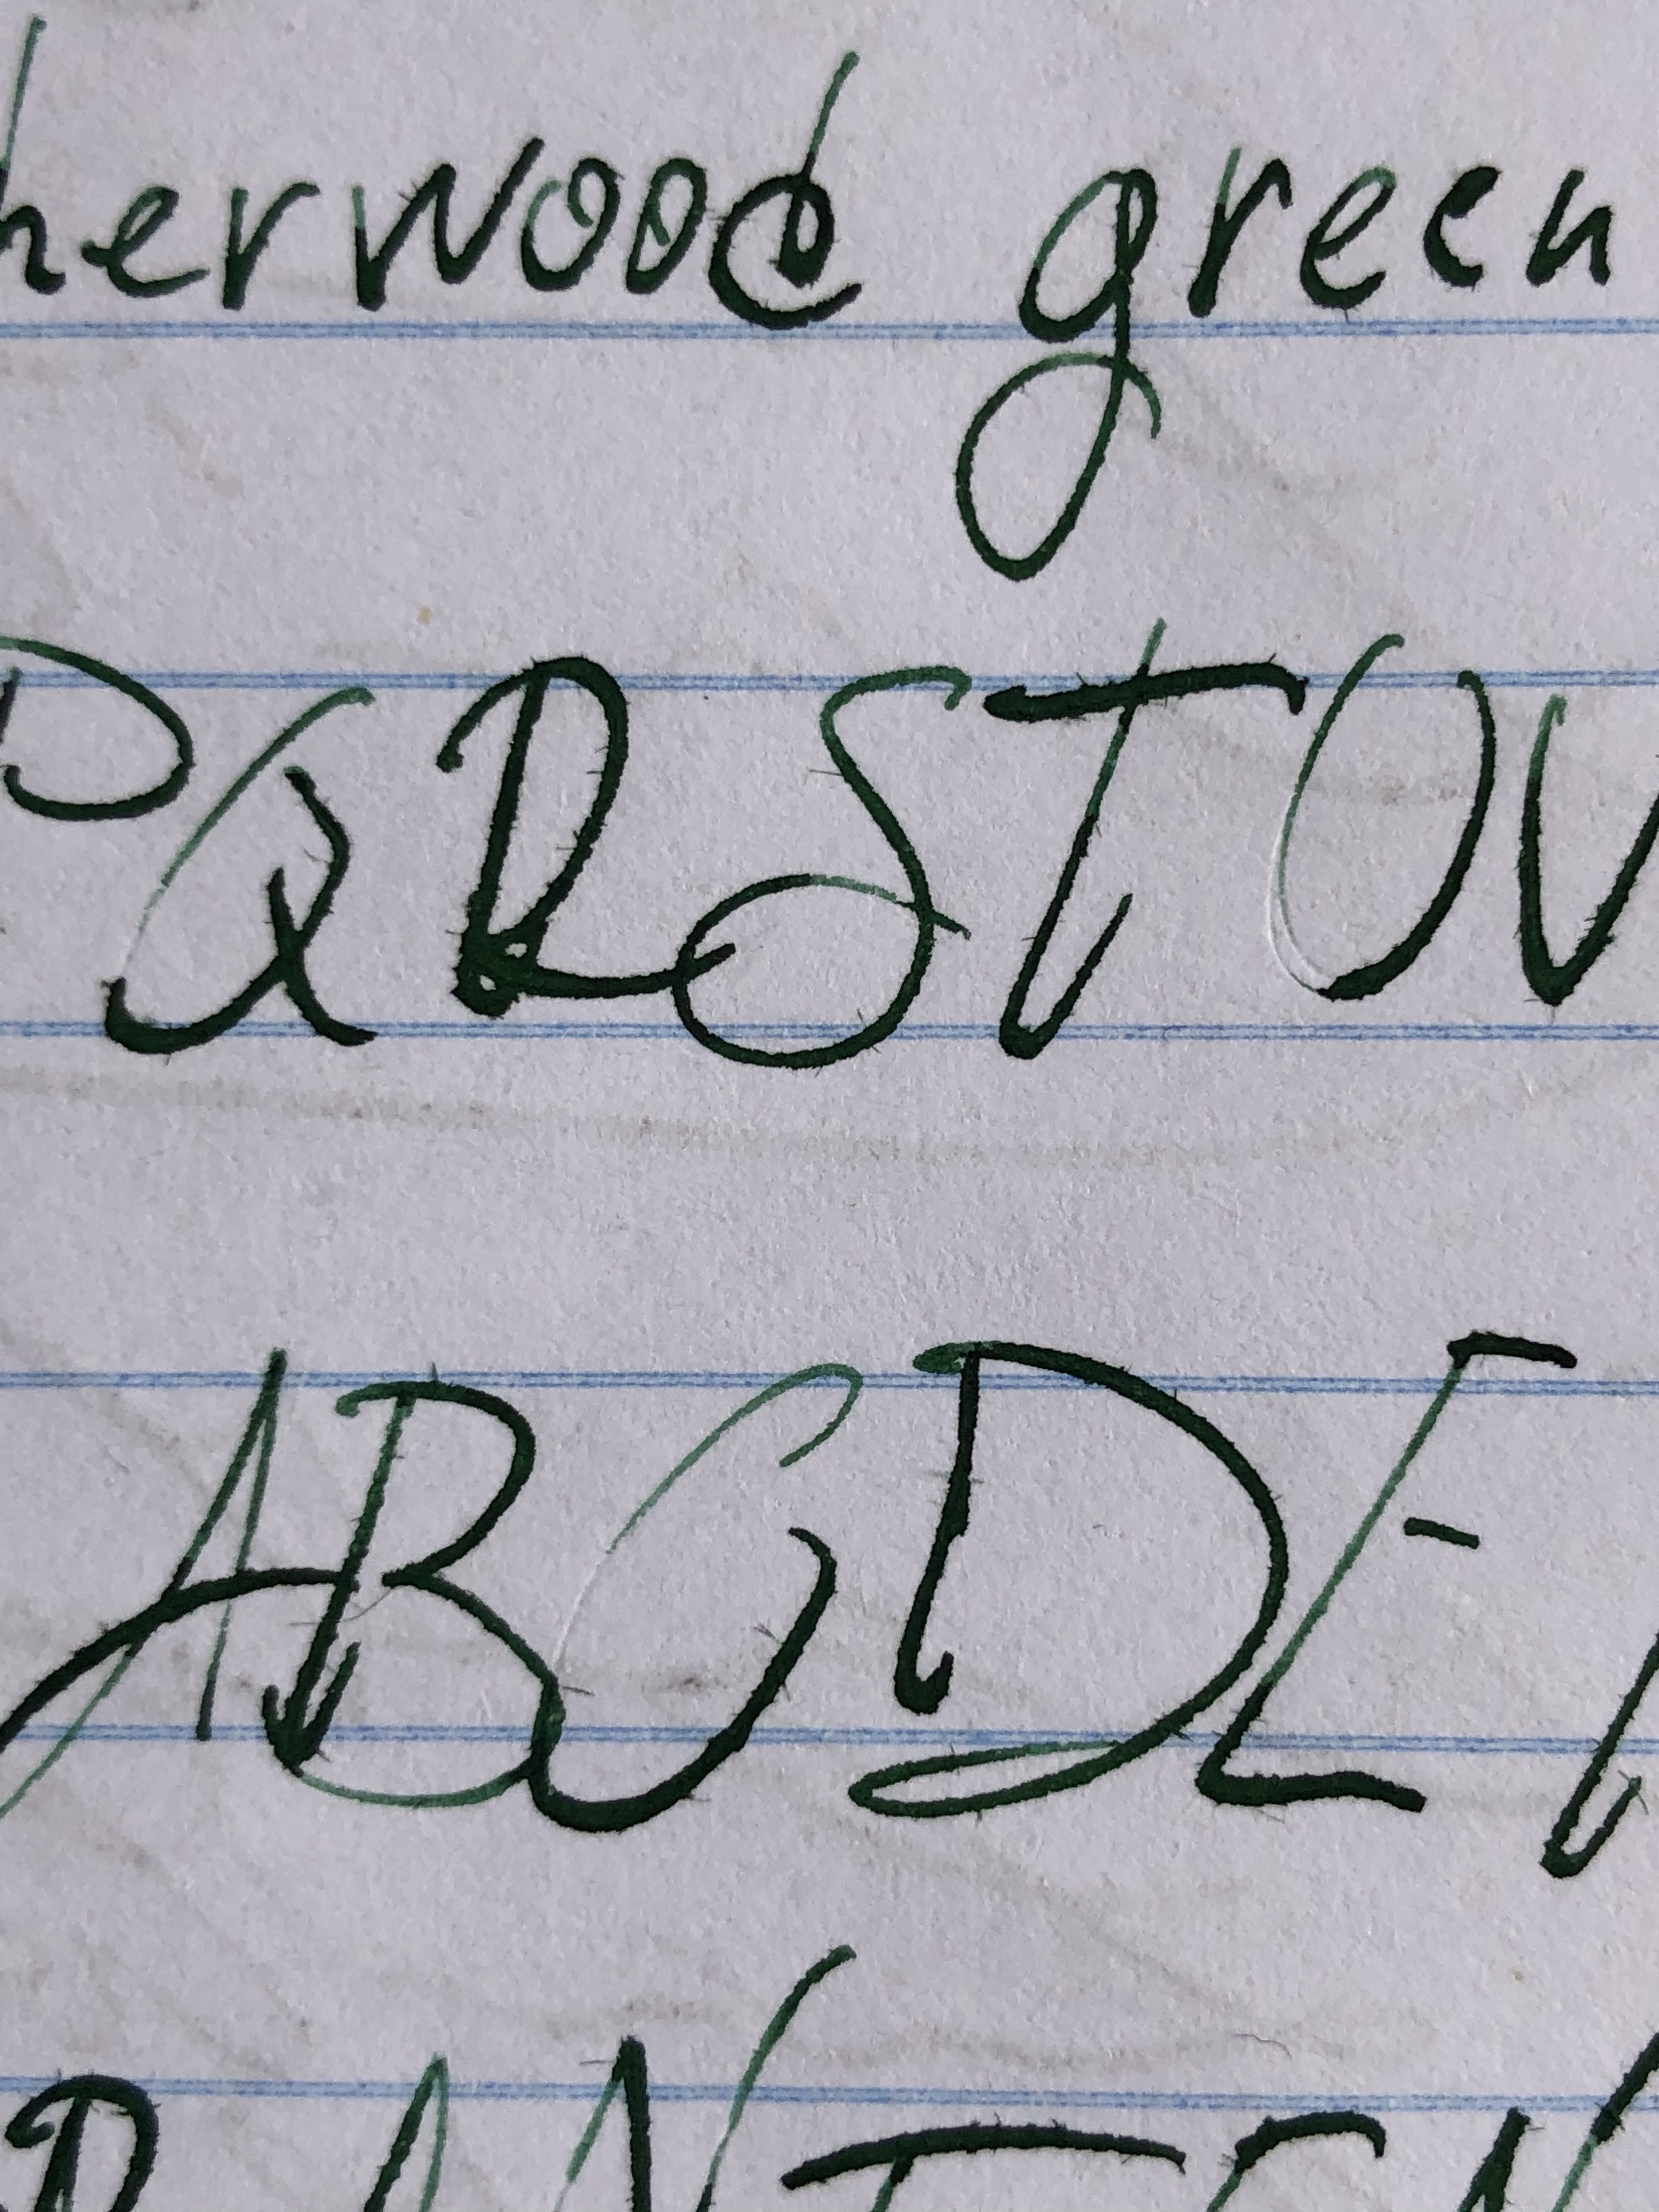 herwood green
PQRSTUV
ABCDE